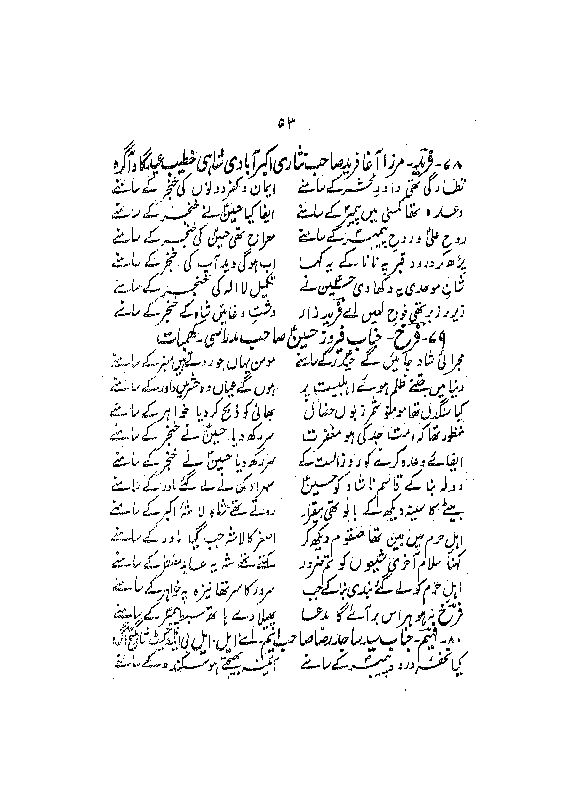 ۵۳
۶۸۔ فرید۔ مرزا آغا فرید صاحب نثاری اکبرآبادی شاہی خطیب عیدگاہ آگرہ
نظارگی تھی داور محشر کے سامنے ایمان و کفر دونوں کی خنجر کے سامنے
وعدہ تھا کمسنی میں پیمبر کے سامنے ایفا کیا حسینؑ نے خنجر کے سامنے
روح علیؑ و روح پیمبرؐ کے سامنے معراج تھی حسینؑ کی خنجر کے سامنے
پڑھ کر درود قبر پہ نانا کے یہ کہا اب ہوگی دید آپ کی خنجر کے سامنے
شان موحدی یہ دکھا دی حسینؑ نے تکمیل لا الہ کی خنجر کے سامنے
زیر و زبر تھی فوج لعیں اے فرید زار دشت وغا میں شاہ کے خنجر کے سامنے
۶۹۔ فرخ۔ جناب فیروز حسین صاحب مدراسی۔ کھمبات
مجرائی شاد جائیں گے حیدرؑ کے سامنے مومن یہاں جو روتے ہیں منبر کے سامنے
دنیا میں جتنے ظلم ہوئے اہلبیت پر ہوں گے عیاں وہ حشر میں داور کے سامنے
کیا سنگدل تھا ملعون شمر زبوں خصال بھائی کو ذبح کر دیا خواہر کے سامنے
منظور تھا کہ امت جد کی ہو مغفرت سر رکھ دیا حسینؑ نے خنجر کے سامنے
ایفائے وعدہ کرنے کو روز الست کے سر رکھ دیا حسینؑ نے خنجر کے سامنے
دولہ بنا کے قاسم ناشاد کو حسینؑ سہرا دکن لے گئے مادر کے سامنے
بیٹے کا سینہ دیکھ کے بانو تھی بیقرار روتے تھے شاہ لاشۂ اکبر کے سامنے
اہل حرم میں بین تھا صغر کو دیکھ کر اصغر کا لاشہ جب گیا مادر کے سامنے
کہنا سلام آخری شیعوں کو تم ضرور کہتے تھے شہ یہ عابد مضطر کے سامنے
اہل حرم کو لے گئے بندی بنا کے جب سرور کا سر تھا نیزہ پہ خواہر کے سامنے
فرخ یہ ہو ہراس بر آئے گا مدعا پھیلا دے ہاتھ سبط پیمبر کے سامنے
۸۰۔ فہیم۔ جناب سید ساجد رضا صاحب ایم۔ اے۔ ایل۔ ایل۔ بی ایڈوکیٹ
کیا تحفہ درود پیمبر کے سامنے آئینہ بھیجتے ہو سکندر کے سامنے